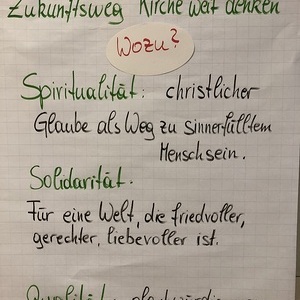 Zukunftsweg Kirche weit denken
Wozu?
Spiritualität: christlicher
Glaube als Weg zu sinnerfülltem
Menschsein.
Solidarität.
Für eine Welt, die friedvoller,
gerechter, liebevoller ist.
Qualität: